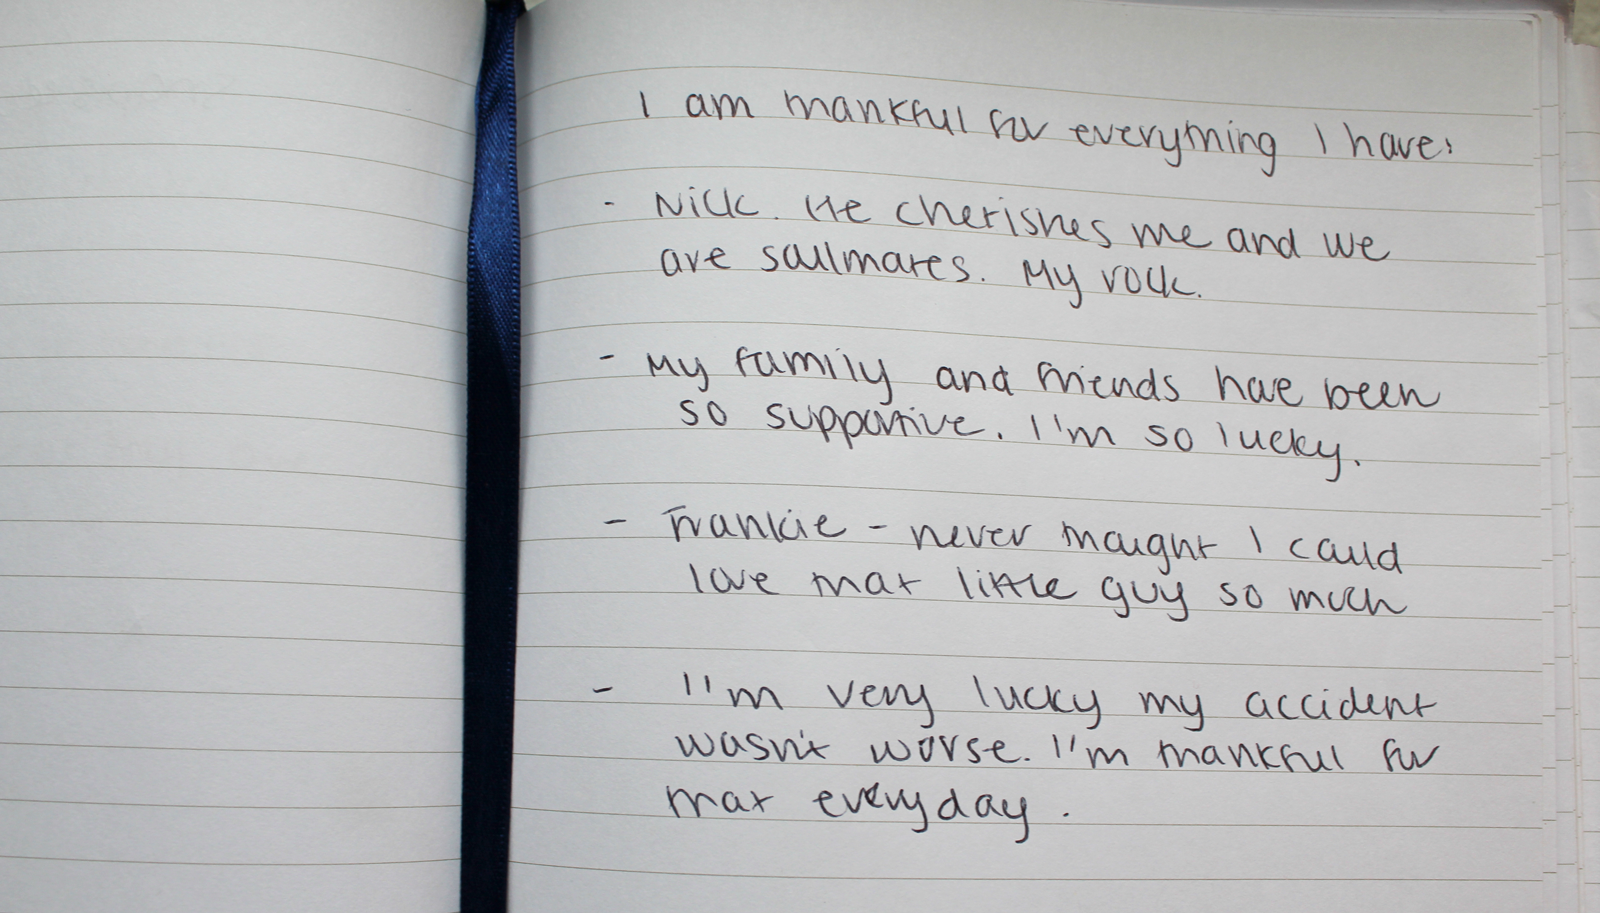 I am thankful for everything I have:
- Nick. He cherishes me and we
are soulmates. My rock.
- My family and friends have been
so supportive. I'm so lucky.
- Frankie - never thought I could
love that little guy so much
- I'm very lucky my accident
wasn't worse. I'm thankful for
that everyday.